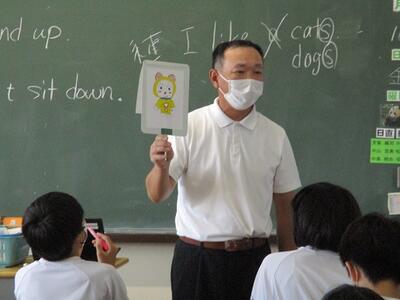 nd up.
t sit down.
種 I like cats
dogs
日吉